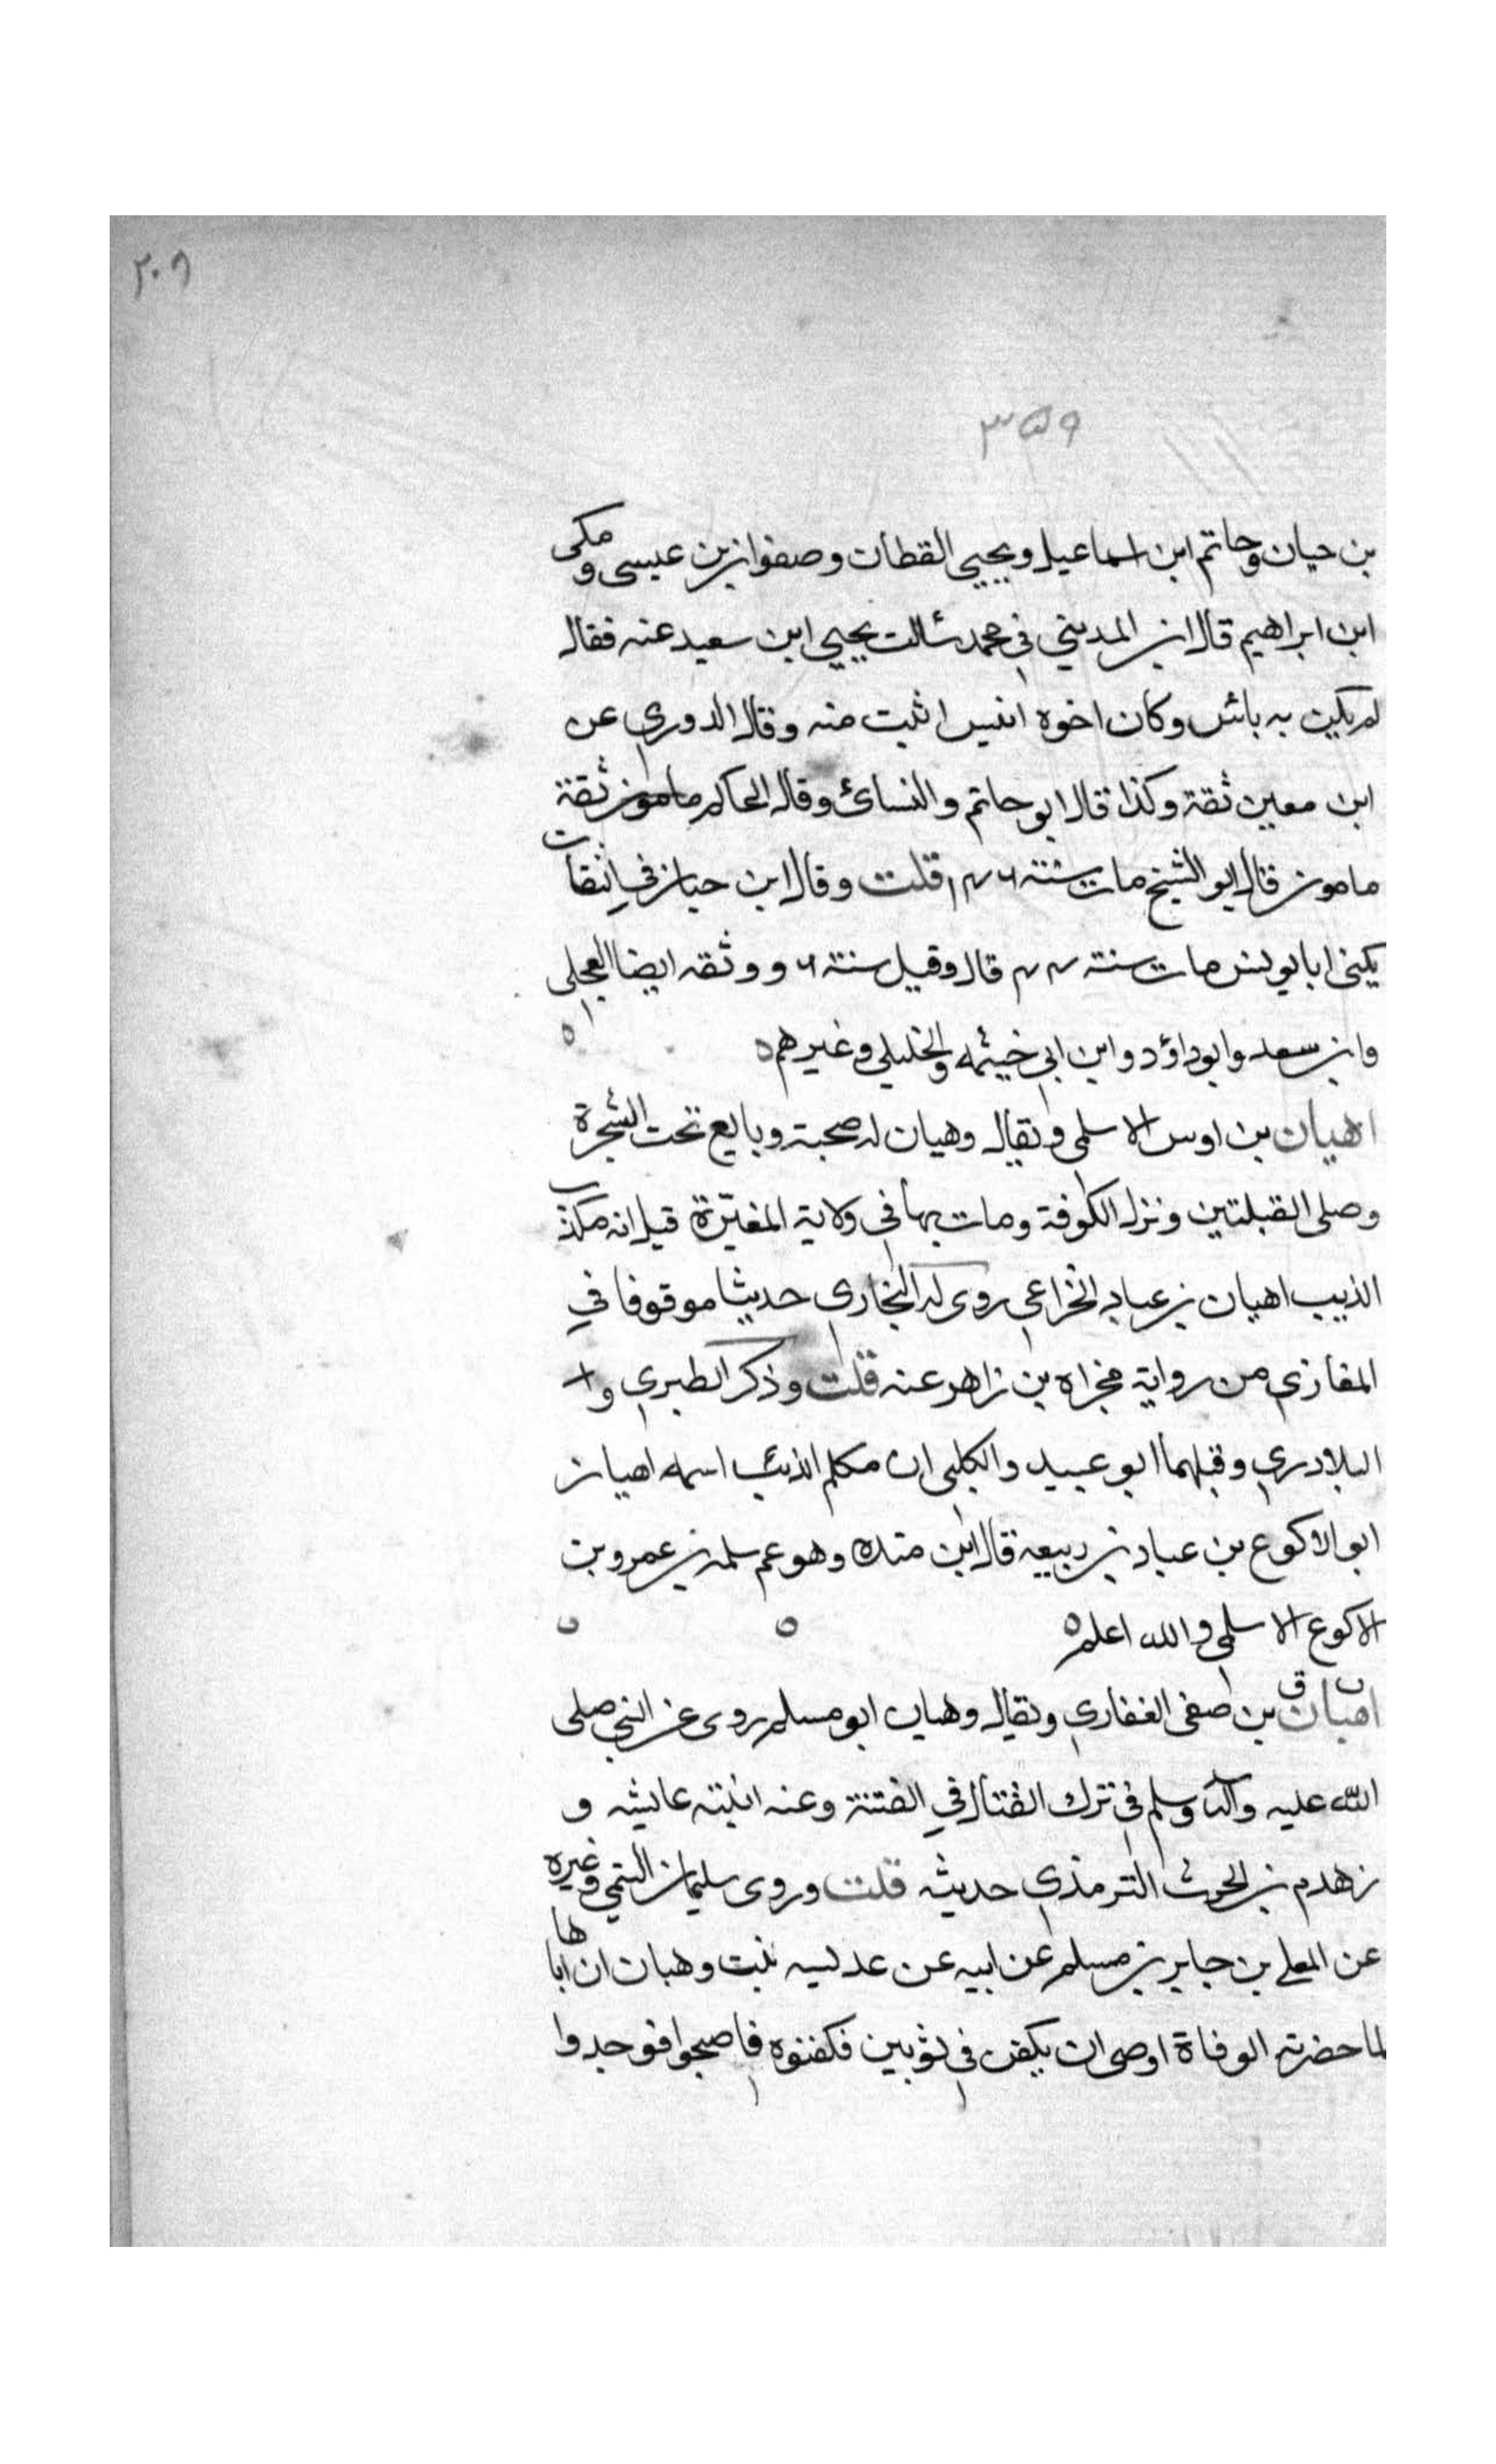 ٢٠٩
٣٥٩
بن حيان وحاتم ابن اسماعيل ويحيى القطان وصفوان بن عيسى ومكي
ابن ابراهيم قال ابن المديني في محمد سالت يحيى ابن سعيد عنه فقال
لم يكن به بائس وكان اخوه انيس اثبت منه وقال الدوري عن
ابن معين ثقة وكذا قال ابو حاتم والنسائ وقال الحاكم مامون ثقة
مامون قال ابو الشيخ مات سنة ١٤٦ قلت وقال ابن حبان في الثقات
يكنى ابا يونس مات سنة ٤٤ قال وقيل سنة ٦ ووثقه ايضا العجلي
وابن سعد وابو داؤد وابن ابي خيثمه والخليلي وغيرهم
اهبان بن اوس الاسلمي ويقال وهبان له صحبة وبايع تحت الشجرة
وصلى القبلتين ونزل الكوفة ومات بها في ولاية المغيرة قيل انه مكذب
الذيب اهبان بن عباد الخزاعي روى له البخاري حديثا موقوفا في
المغازي من رواية مجزاه بن زاهر عنه قلت وذكر الطبري وا
البلادري وقبلهما ابو عبيد والكلبي ان مكلم الذئب اسمه اهبان
ابو الاكوع بن عباد بن ربيعه قال ابن منده وهو عم سلمه بن عمرو بن
الاكوع الاسلمي والله اعلم
ت ق
اهبان بن صفي الغفاري ويقال وهبان ابو مسلم روى عن النبي صلى
الله عليه وآله وسلم في ترك القتال في الفتنة وعنه ابنته عايشه و
زهدم بن الحرث الترمذي حديثه قلت وروى سليمان التيمي وغيره
عن المعلى بن جابر بن مسلم عن ابيه عن عديسه بنت وهبان ان اباها
لما حضرته الوفاة اوصى ان يكفن في ثوبين فكفنوه فاصبحوا فوجدوا